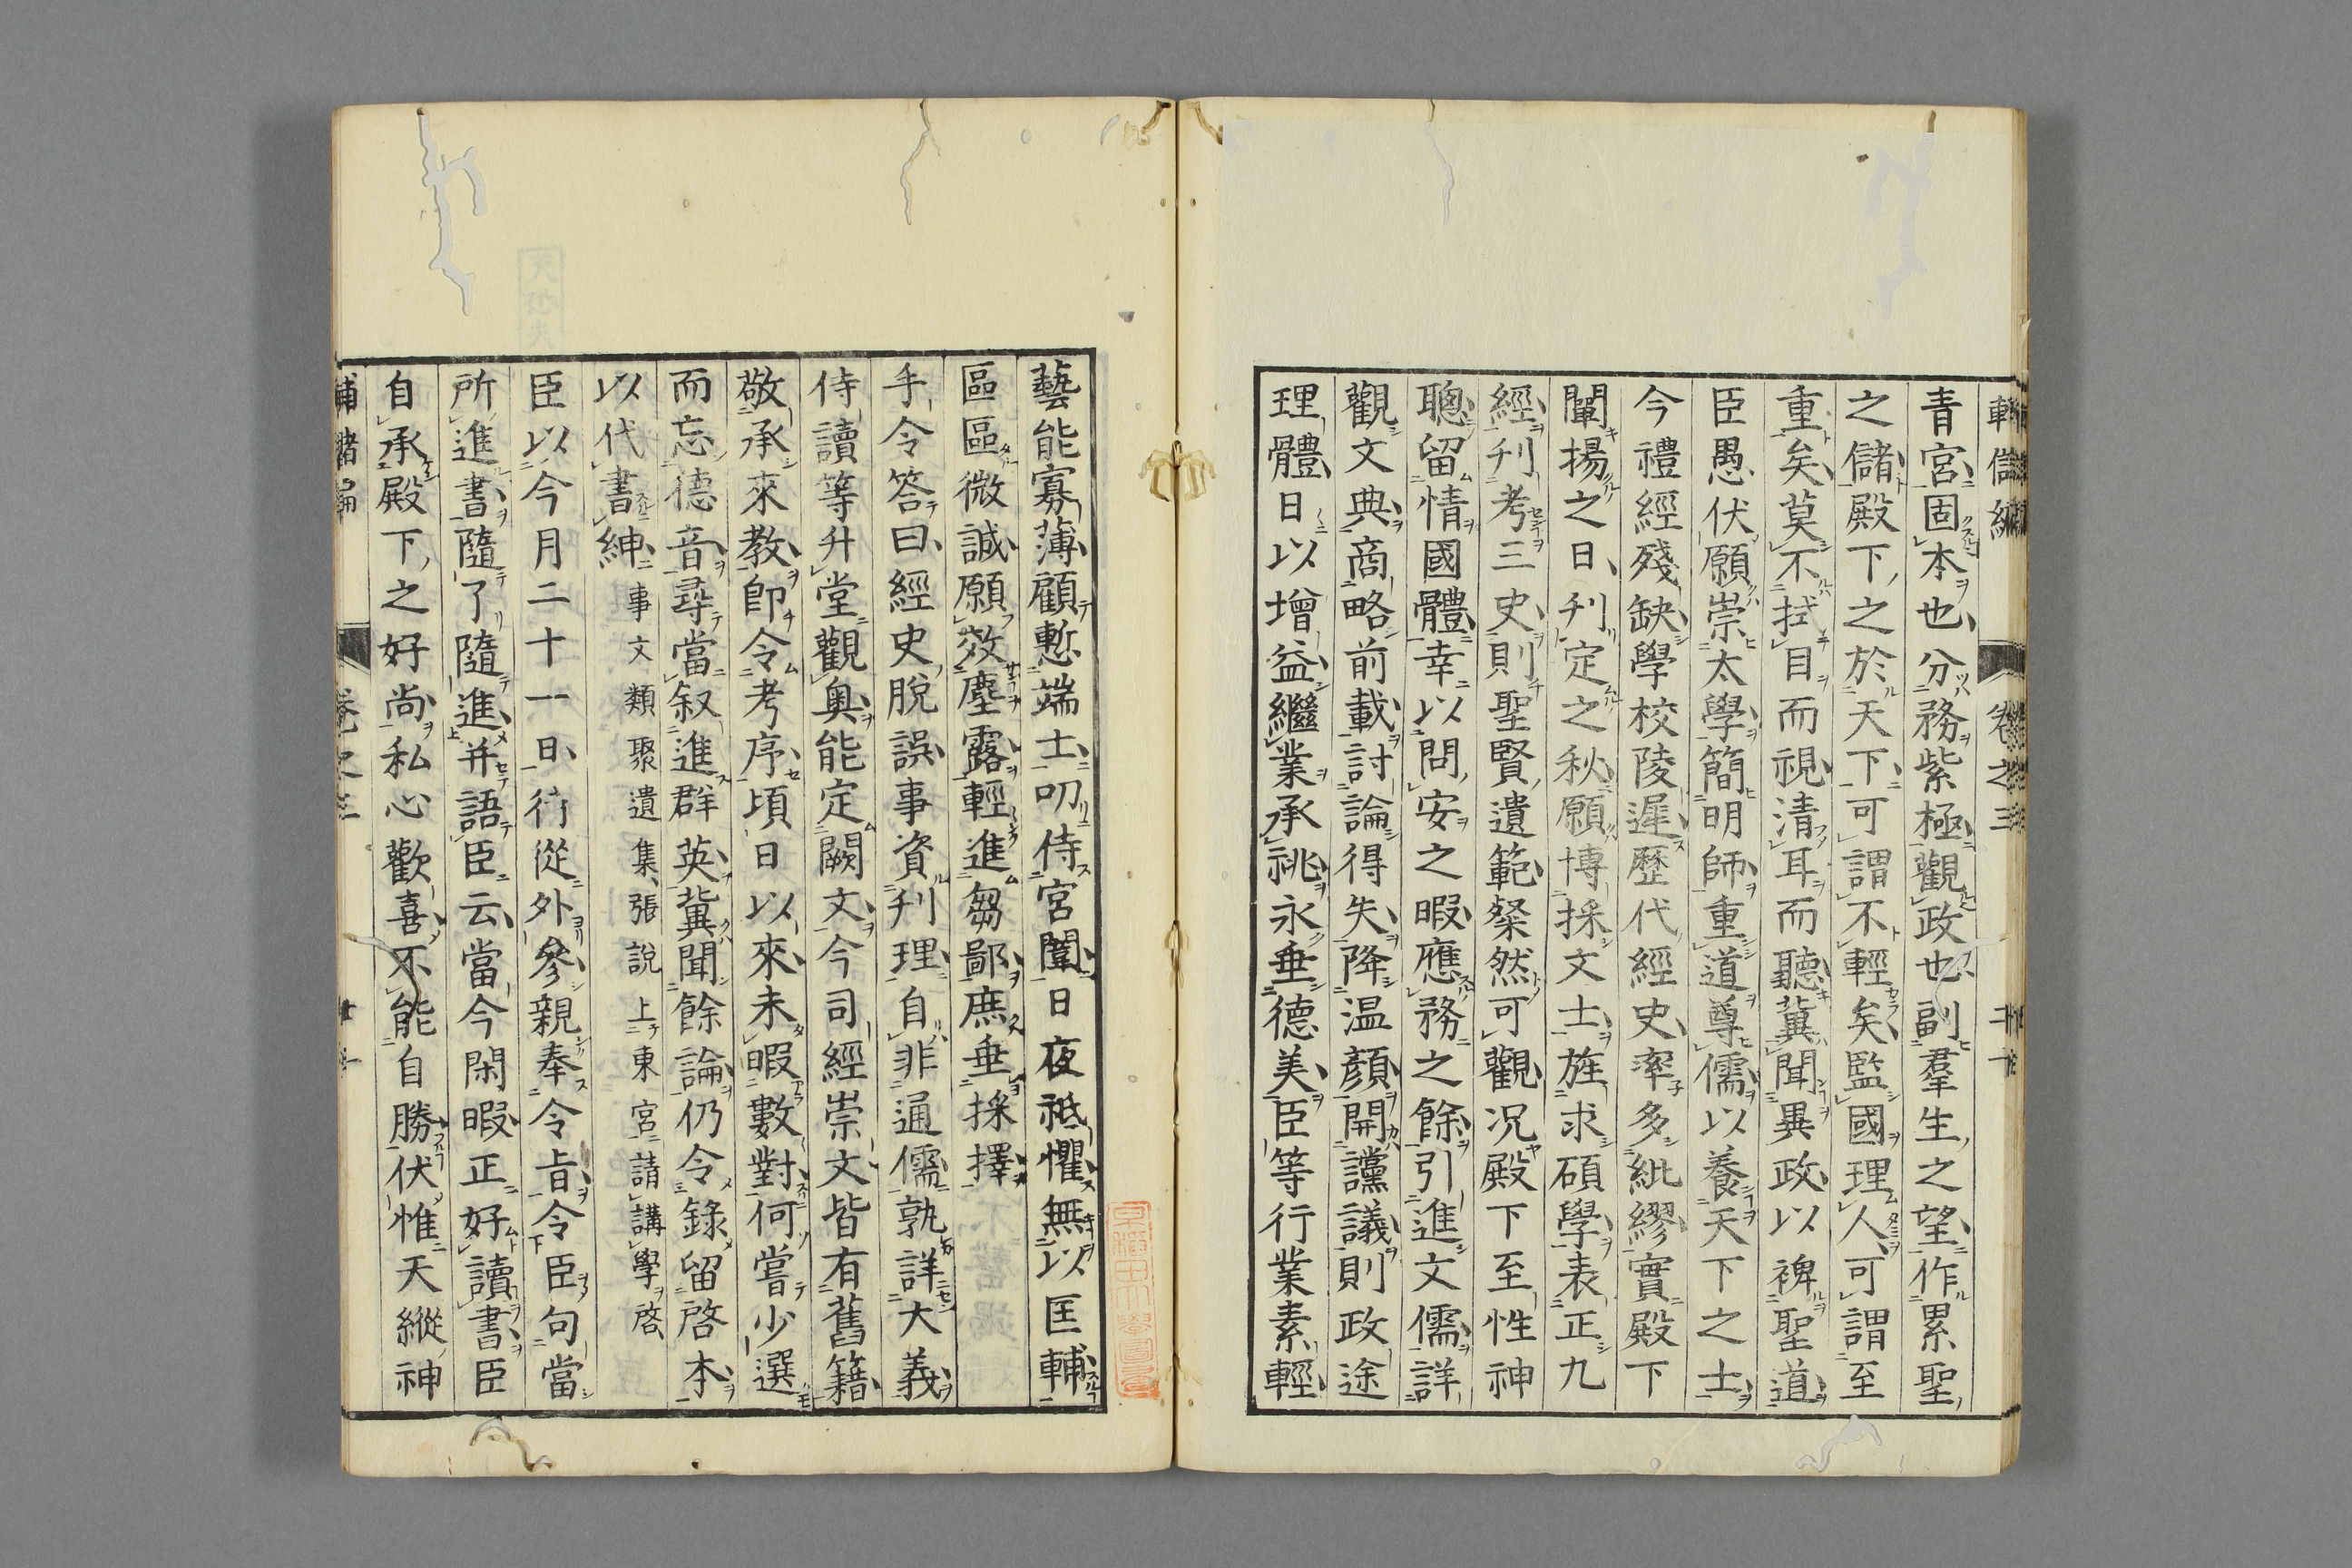 輔儲編 卷之三 二十
青宮固本也分務紫極觀政也副羣生之望作累聖
之儲殿下之於天下可謂不輕矣監國理人可謂至
重矣莫不拭目而視清耳而聽冀聞異政以裨聖道
臣愚伏願崇太學簡明師重道尊儒以養天下之士
今禮經殘缺學校陵遲歷代經史率多紕繆實殿下
闡揚之日刋定之秋願博採文士旌求碩學表正九
經刋考三史則聖賢遺範粲然可觀况殿下至性神
聰留情國體幸以問安之暇應務之餘引進文儒詳
觀文典商略前載討論得失降温顏開讜議則政途
理體日以增益繼業承祧永垂德美臣等行業素輕
藝能寡薄顧慙端士叨侍宮闈日夜祗懼無以匡輔
區區微誠願效塵露輕進芻鄙庶垂採擇
手令答曰經史脫誤事資刋理自非通儒孰詳大義
侍讀等升堂觀奧能定闕文今司經崇文皆有舊籍
敬承來教卽令考序頃日以來未暇數對何嘗少選
而忘德音尋當叙進群英冀聞餘論仍令錄留啓本
以代書紳 事文類聚遺集張說上東宮請講學啓
臣以今月二十一日待從外參親奉令旨令臣句當
所進書隨了隨進并語臣云當今閑暇正好讀書臣
自承殿下之好尚私心歡喜不能自勝伏惟天縱神
輔儲編 卷之三